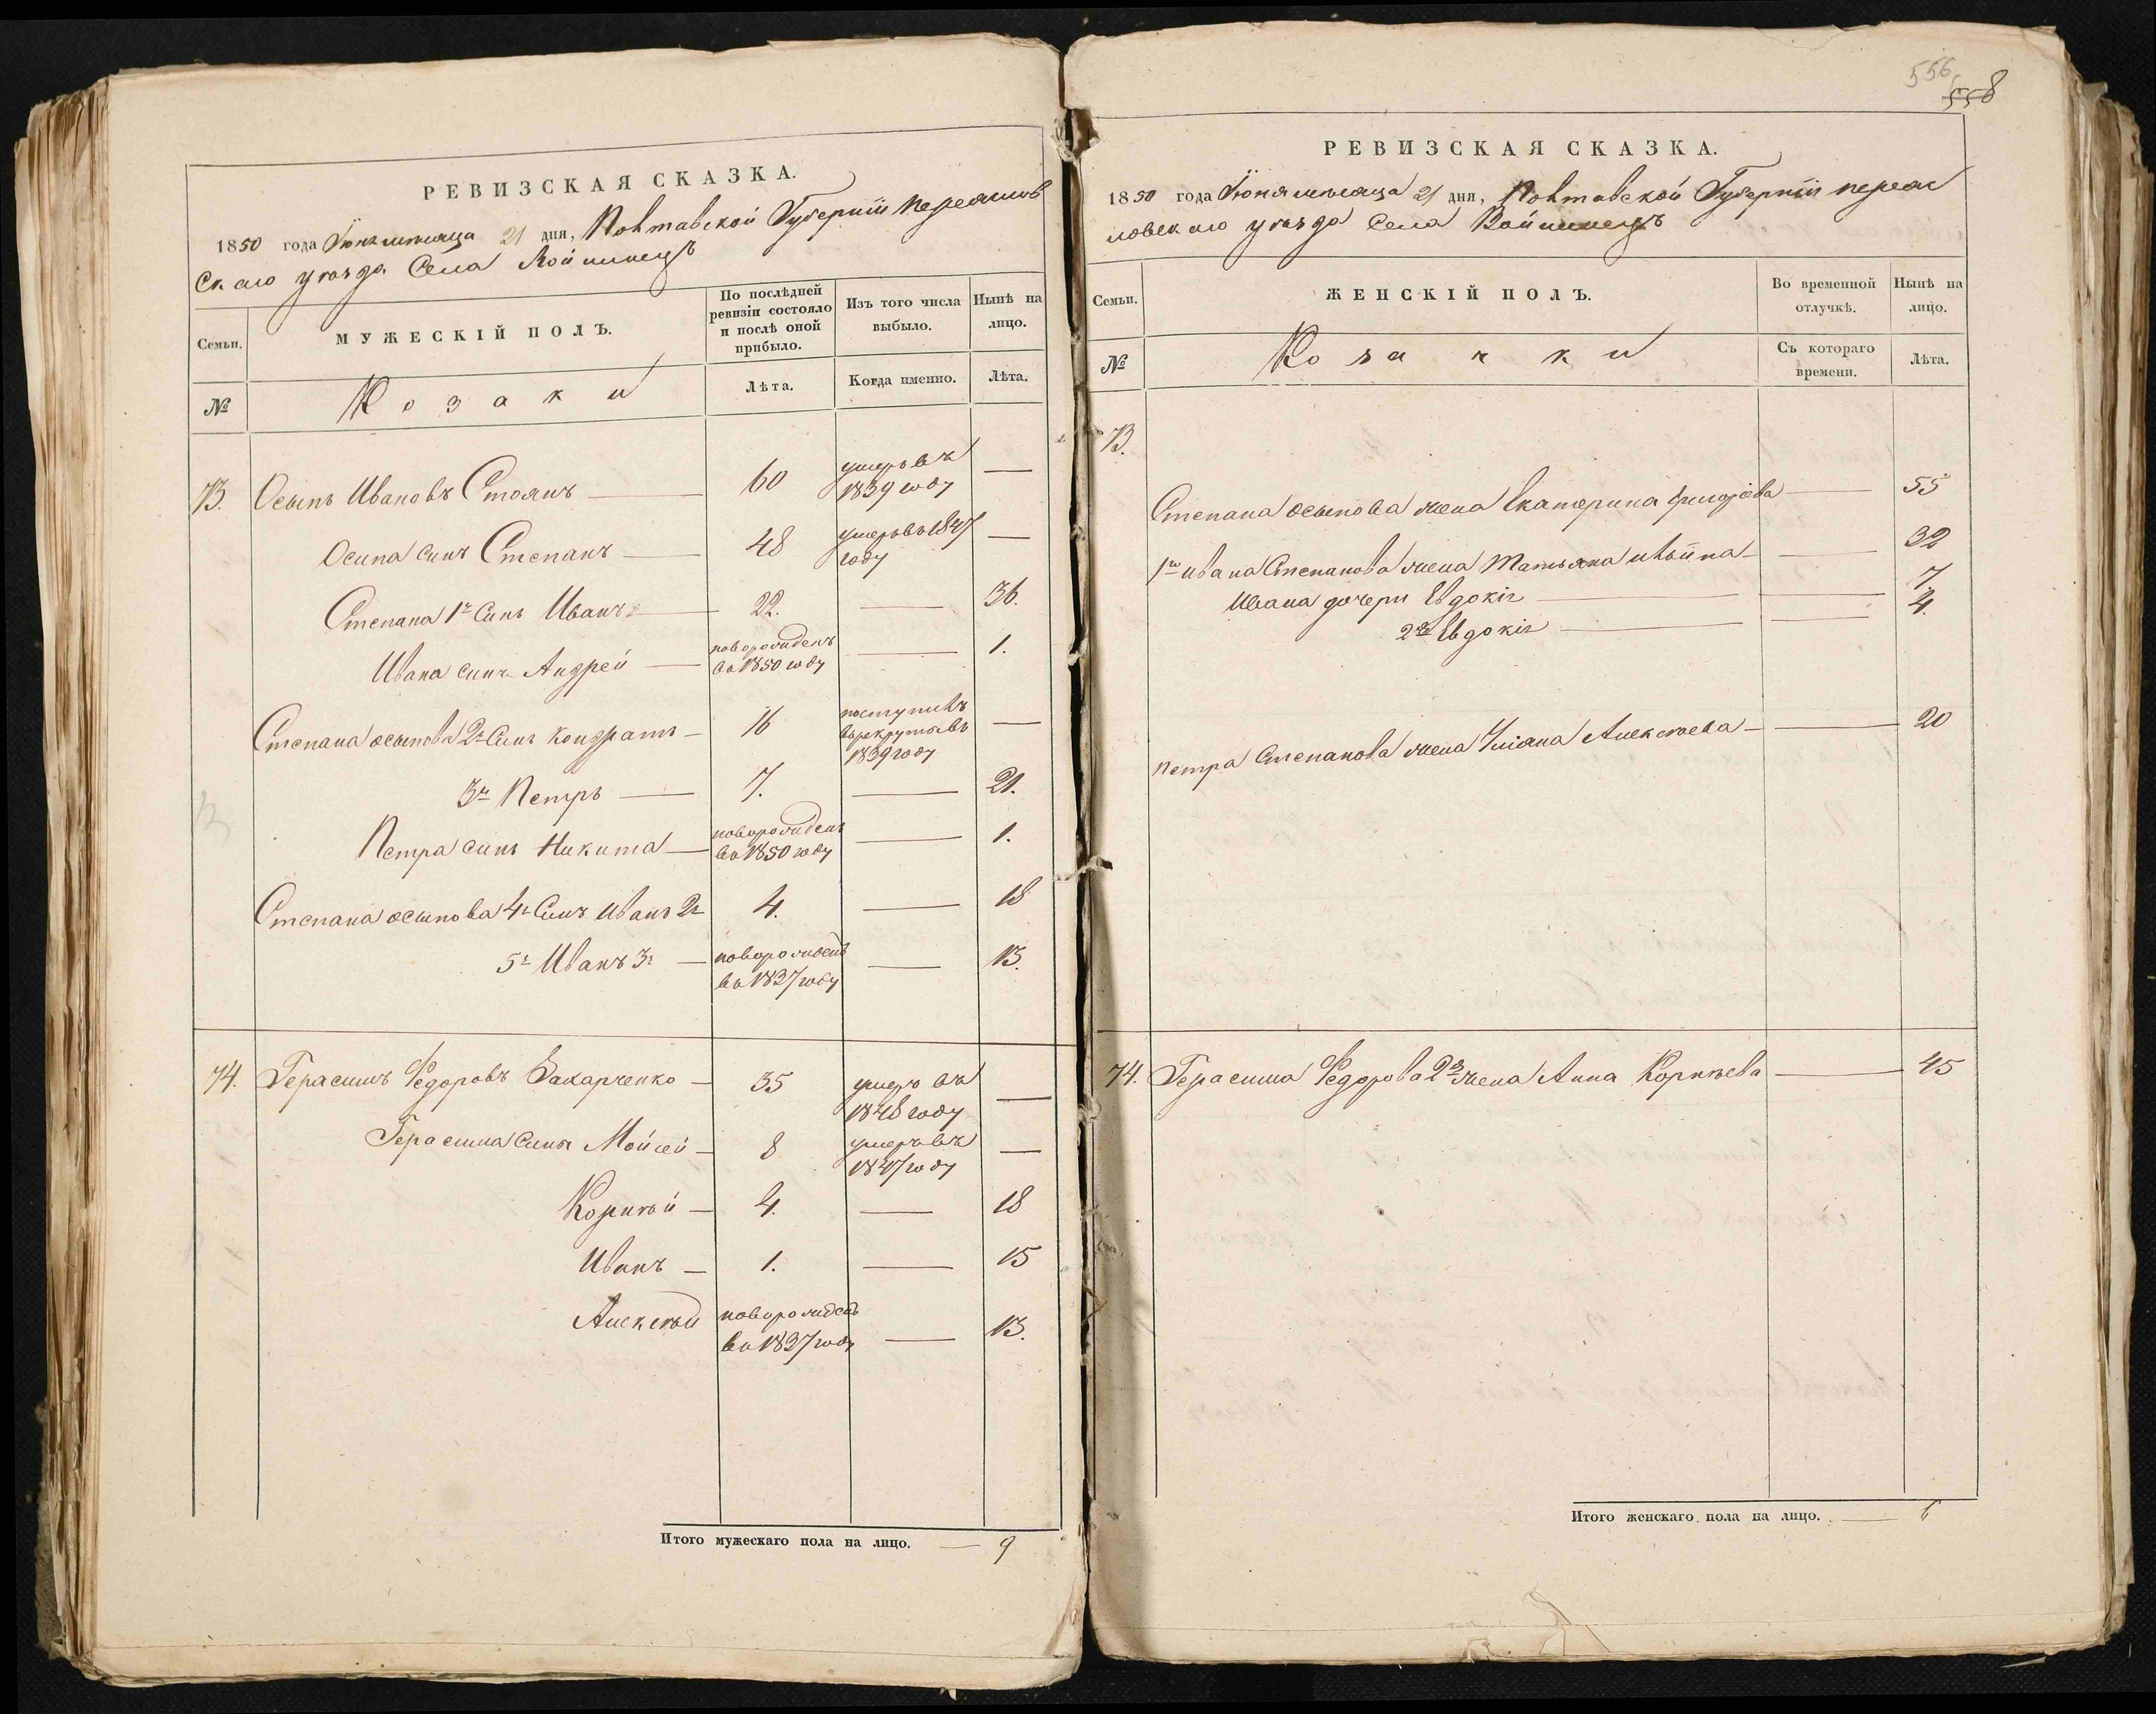 РЕВИЗСКАЯ СКАЗКА.
1850 года Іюня мѣсяца 21 дня, Полтавской Губерніи Переяслов
Скаго уѣзда Села Войтовецъ
Семьи.
МУЖЕСКІЙ ПОЛЪ.
По послѣдней ревизіи состояло и послѣ оной прибыло.
Изъ того числа выбыло.
Нынѣ на лицо.
№
Козаки
Лѣта.
Когда именно.
Лѣта.
73. Осыпъ Ивановъ Стоянъ — 60 умеръ въ 1839 году —
Осипа синъ Степанъ — 48 умеръ въ 1847 году —
Степана 1й Синъ Иванъ — 22. — 36.
Ивана синъ Андрей — новорожденъ въ 1850 году — 1.
Степана осыпова 2й Синъ Кондратъ — 16 поступилъ въ рекруты въ 1839 году —
3й Петръ — 7. — 21.
Петра синъ Никита — новорожденъ въ 1850 году — 1.
Степана осыпова 4й Синъ Иванъ 2й 4. — 18
5й Иванъ 3й — новорожденъ въ 1837 году — 13.
74. Герасимъ Федоровъ Захарченко — 35 умеръ въ 1848 году —
Герасима Сины Мойсей — 8 умеръ въ 1847 году —
Корнѣй — 4. — 18
Иванъ — 1. — 15
Алексѣй новорожденъ въ 1837 году — 13.
Итого мужескаго пола на лицо. — 9
556
558
РЕВИЗСКАЯ СКАЗКА.
1850 года Іюня мѣсяца 21 дня, Полтавской Губерніи переяс
ловскаго уѣзда Села Войтовецъ
Семьи.
ЖЕНСКІЙ ПОЛЪ.
Во временной отлучкѣ.
Нынѣ на лицо.
№
Козачки
Съ котораго времени.
Лѣта.
73.
Степана осыпова жена Екатерина — 55
1го ивана Степанова жена Татьяна — 32
Ивана дочери Евдокія — 7.
2я Евдокія — 4.
петра Степанова жена Уліяна Алексѣева — 20
74. Герасима Федорова 2я жена Анна Корнѣева — 45
Итого женскаго пола на лицо. — 6